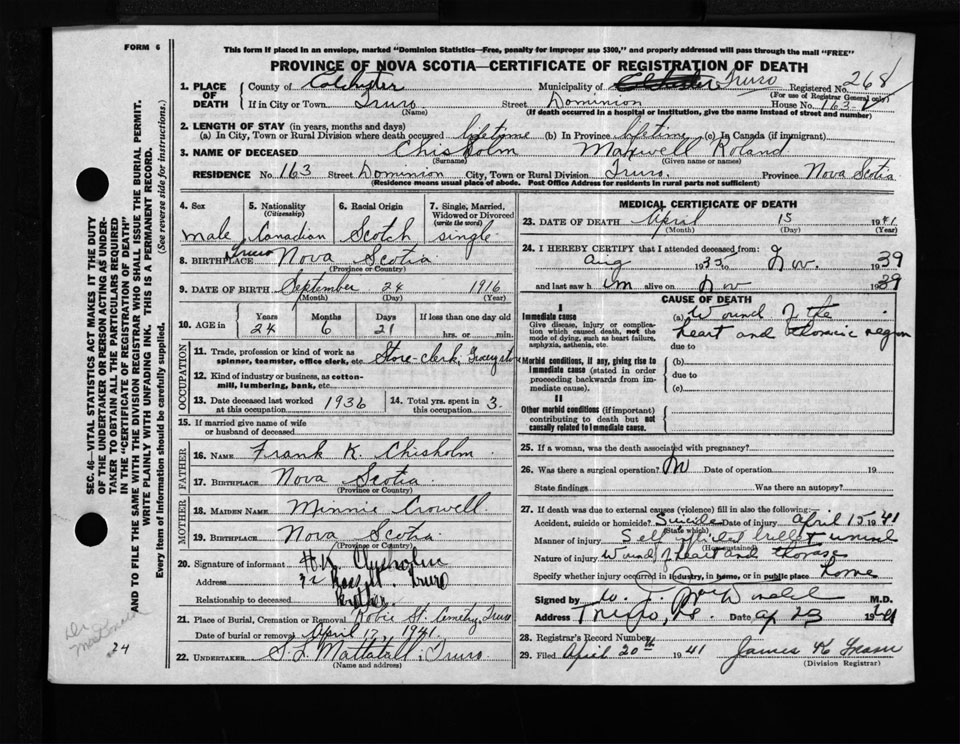 FORM 6
This form if placed in an envelope, marked "Dominion Statistics—Free, penalty for improper use $300," and properly addressed will pass through the mail "FREE"
PROVINCE OF NOVA SCOTIA—CERTIFICATE OF REGISTRATION OF DEATH
1. PLACE OF DEATH County of Colchester Municipality of Truro Registered No. 268
(For use of Registrar General only)
If in City or Town Truro Street Dominion House No. 163
(Name) (If death occurred in a hospital or institution, give the name instead of street and number)
2. LENGTH OF STAY (in years, months and days)
(a) In City, Town or Rural Division where death occurred lifetime (b) In Province lifetime (c) In Canada (if immigrant)
3. NAME OF DECEASED Chisholm Maxwell Roland
(Surname) (Given name or names)
RESIDENCE No. 163 Street Dominion City, Town or Rural Division Truro. Province Nova Scotia
(Residence means usual place of abode. Post Office Address for residents in rural parts not sufficient)
4. Sex 5. Nationality (Citizenship) 6. Racial Origin 7. Single, Married, Widowed or Divorced (write the word)
male Canadian Scotch single
8. BIRTHPLACE Truro Nova Scotia
(Province or Country)
9. DATE OF BIRTH September 24 1916
(Month) (Day) (Year)
10. AGE in Years Months Days If less than one day old
24 6 21 hrs. or min.
OCCUPATION
11. Trade, profession or kind of work as spinner, teamster, office clerk, etc. Store-clerk,
12. Kind of industry or business, as cotton-mill, lumbering, bank, etc.
13. Date deceased last worked at this occupation 1936 14. Total yrs. spent in this occupation 3.
15. If married give name of wife or husband of deceased
FATHER
16. NAME Frank K. Chisholm
17. BIRTHPLACE Nova Scotia
(Province or Country)
MOTHER
18. MAIDEN NAME Minnie Crowell
19. BIRTHPLACE Nova Scotia
(Province or Country)
20. Signature of informant Chisholm
Address Truro
Relationship to deceased Brother.
21. Place of Burial, Cremation or Removal Robie St. Cemetry, Truro
Date of burial or removal April 17, 1941.
22. UNDERTAKER Mattatall, Truro.
(Name and address)
MEDICAL CERTIFICATE OF DEATH
23. DATE OF DEATH April 15 1941
(Month) (Day) (Year)
24. I HEREBY CERTIFY that I attended deceased from:
Aug 1935 to Nov. 1939
and last saw him alive on Nov 1939
CAUSE OF DEATH
I
Immediate cause (a) Wound of the
Give disease, injury or complication which caused death, not the mode of dying, such as heart failure, asphyxia, asthenia, etc. heart and thoracic region
due to
Morbid conditions, if any, giving rise to immediate cause (stated in order proceeding backwards from immediate cause). (b)
due to
(c)
II
Other morbid conditions (if important) contributing to death but not causally related to immediate cause.
25. If a woman, was the death associated with pregnancy?
26. Was there a surgical operation? No Date of operation 19
State findings Was there an autopsy?
27. If death was due to external causes (violence) fill in also the following:
Accident, suicide or homicide? Suicide Date of injury April 15 1941
(State which)
Manner of injury Self inflicted bullet wound
(How sustained)
Nature of injury Wound of heart and thorax
Specify whether injury occurred in industry, in home, or in public place Home
Signed by M.D.
Address Truro, Date Ap 23
28. Registrar's Record Number
29. Filed April 20th 1941 James K
(Division Registrar)
SEC. 46—VITAL STATISTICS ACT MAKES IT THE DUTY OF THE UNDERTAKER OR PERSON ACTING AS UNDERTAKER TO OBTAIN ALL THE PARTICULARS REQUIRED IN THE "CERTIFICATE OF REGISTRATION OF DEATH"
AND TO FILE THE SAME WITH THE DIVISION REGISTRAR WHO SHALL ISSUE THE BURIAL PERMIT.
WRITE PLAINLY WITH UNFADING INK. THIS IS A PERMANENT RECORD.
Every item of Information should be carefully supplied. (See reverse side for instructions.)
24